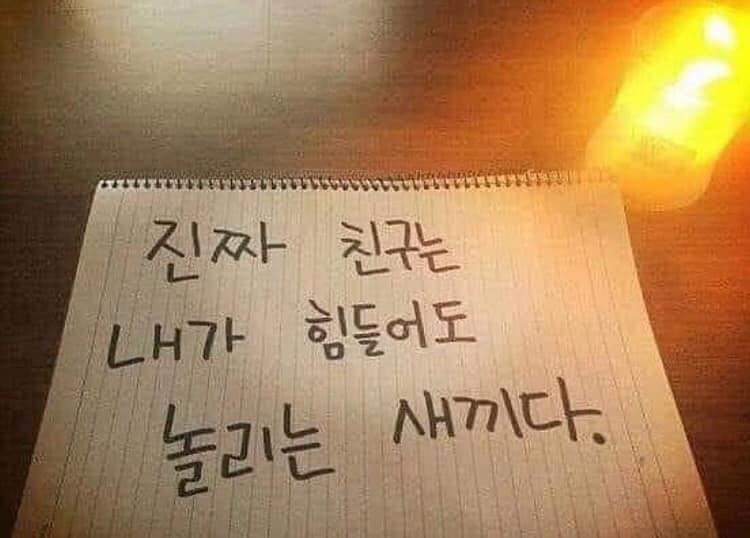 진짜 친구는
내가 힘들어도
놀리는 새끼다.